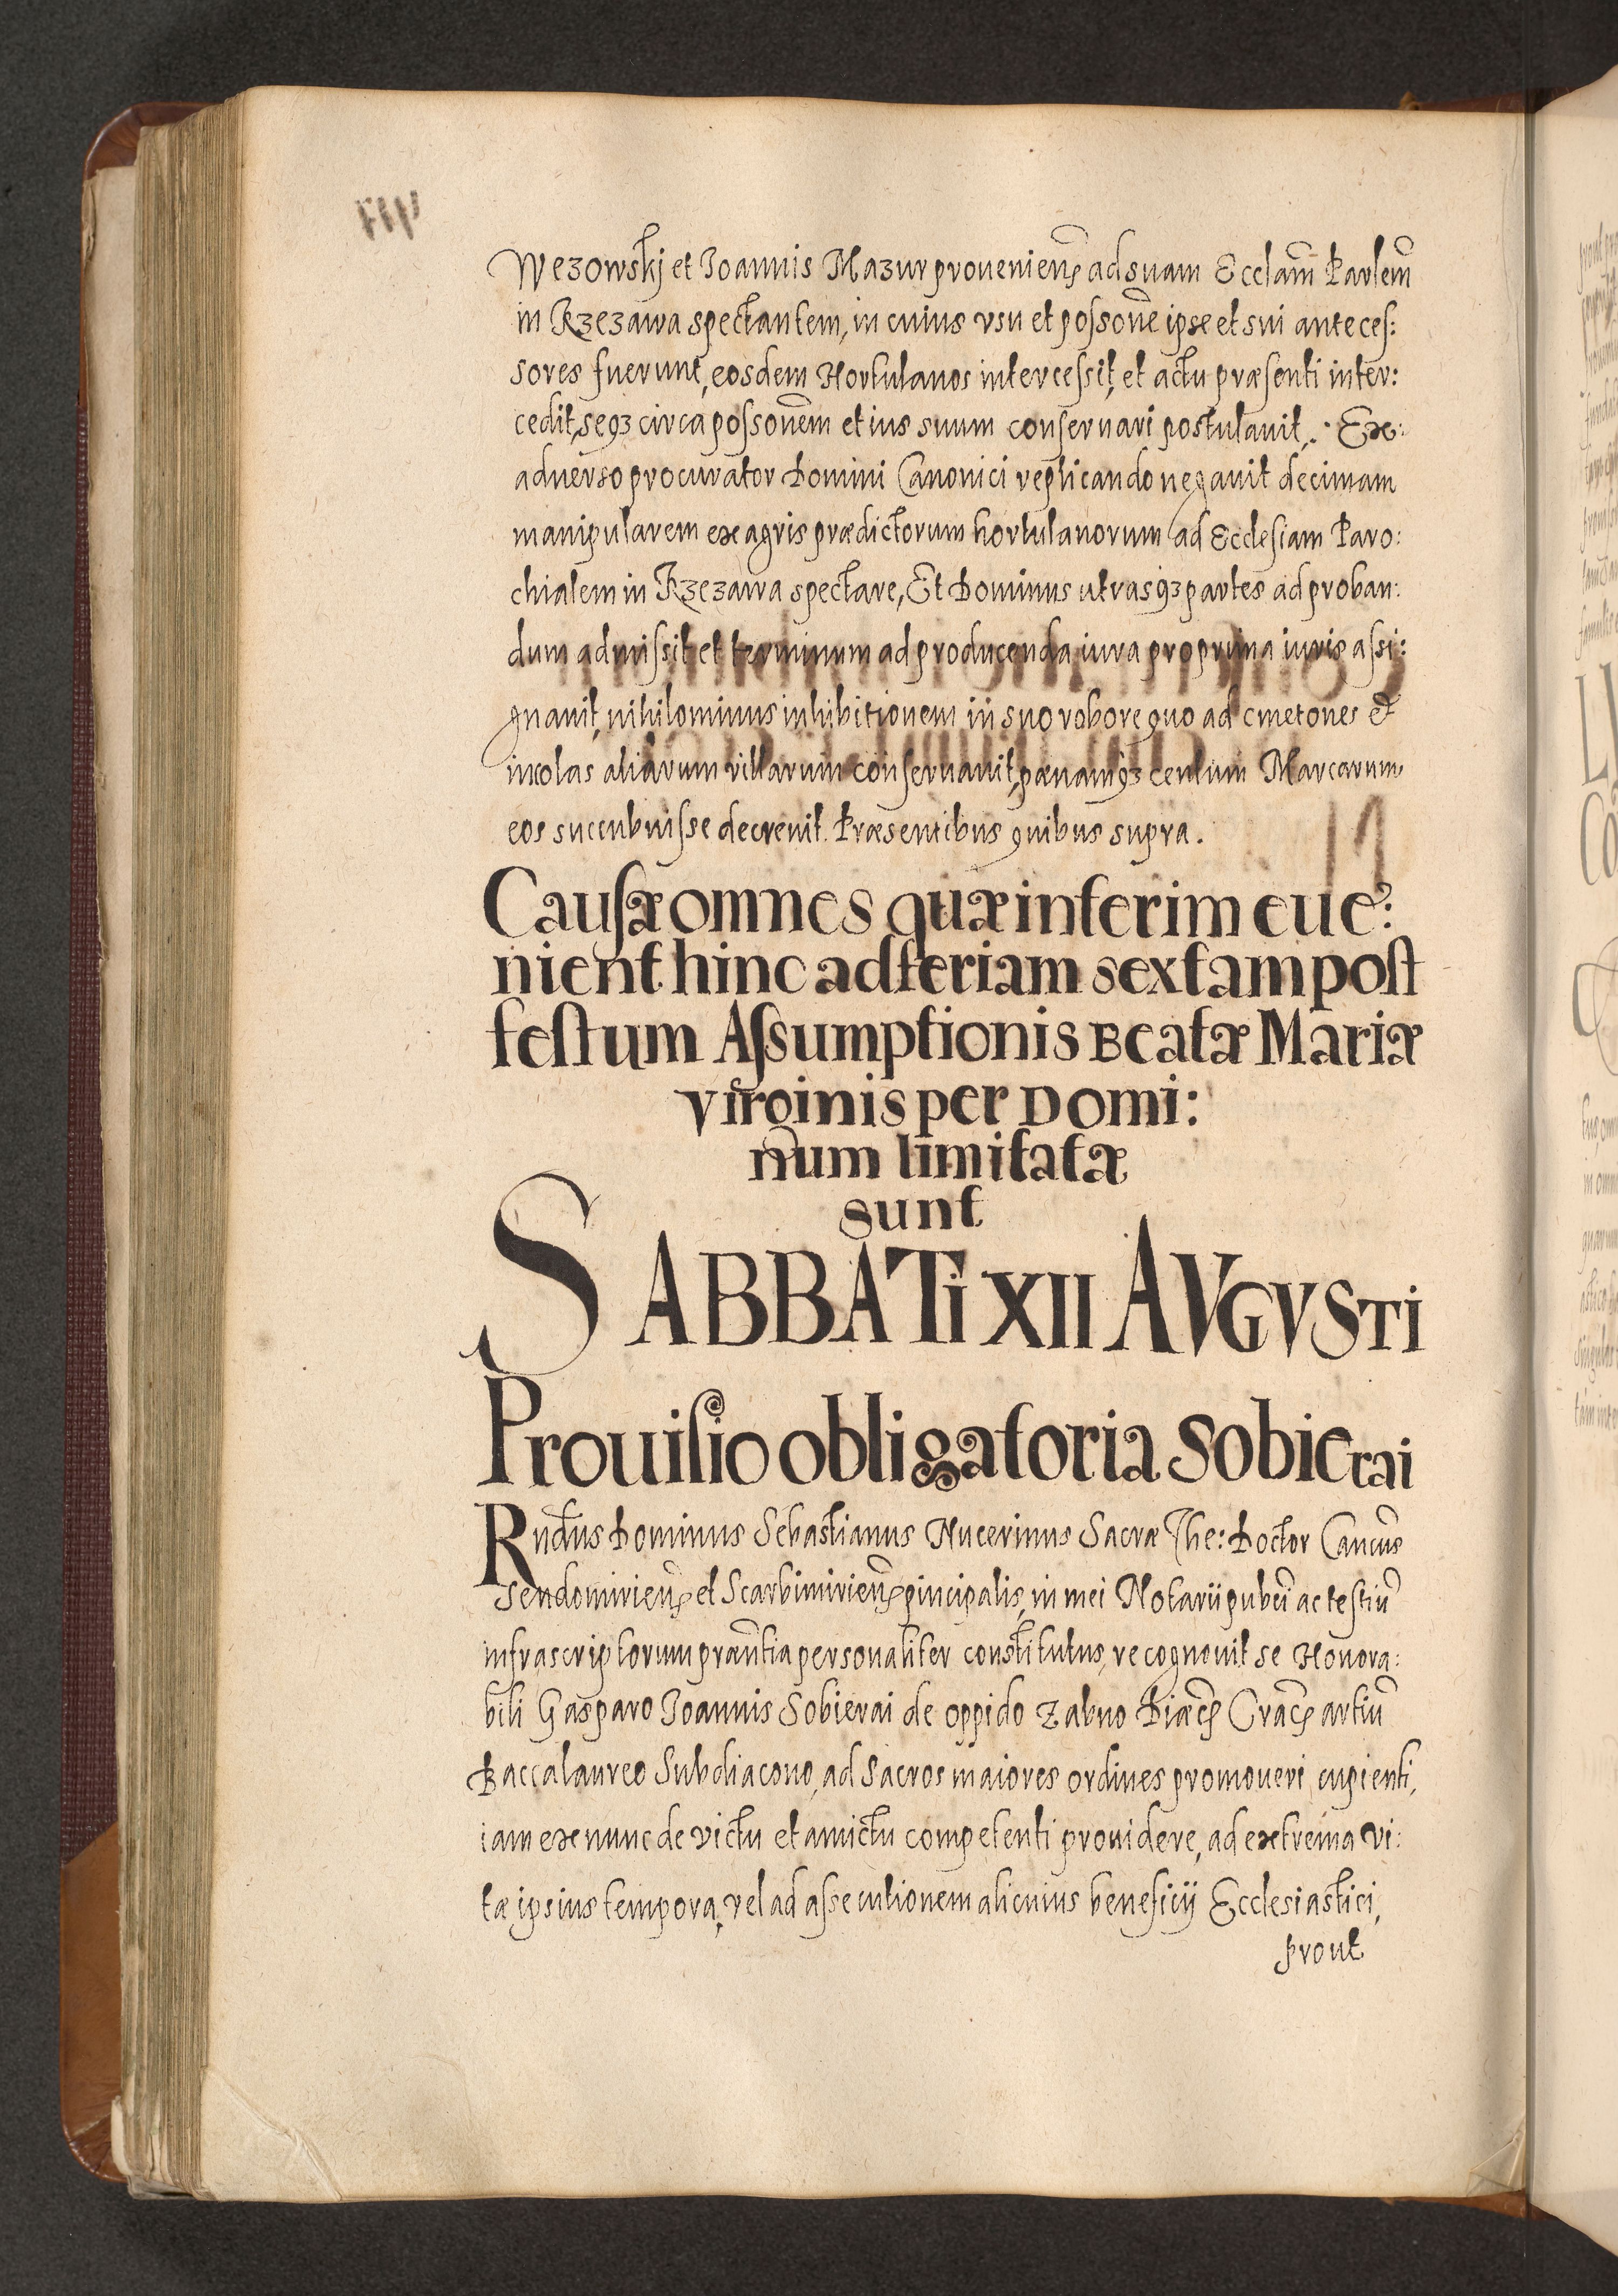 Wezowskj et Joannis Mazur proueniens ad suam Ecclam Parlem
in Rzezawa spectantem, in cuius vsu et possone ipse et sui anteces:
sores fuerunt, eosdem Hortulanos intercessit, et actu præsenti inter:
cedit, seqз circa possonem et ius suum conseruari postulauit. Ex:
aduerso procurator Domini Canonici replicando negauit decimam
manipularem ex agris prædictorum hortulanorum ad Ecclesiam Paro:
chialem in Rzezawa spectare, Et Dominus utrasqз partes ad proban:
dum admissit et terminum ad producenda iura pro prima iuris assi:
gnauit, nihilominus inhibitionem in suo robore quo ad cmetones et
incolas aliarum villarum conseruauit, pænamqз centum Marcarum
eos succubuisse decreuit. Præsentibus quibus supra.
Causæ omnes quæ interim eue:
nient hinc ad feriam sextam post
festum Assumptionis Beatæ Mariæ
virginis per Domi:
num limitatæ
sunt
SABBATi XII AVGVSTi
Prouisio obligatoria Sobierai
Rndus Dominus Sebastianus Nucerinus Sacræ The: Doctor Cancus
Sendomiriens et Scarbimiriens pincipalis, in mei Notarii pubci ac testiu
infrascriptorum præntia personaliter constitutus, recognouit se Honora:
bili Gasparo Joannis Sobierai de oppido Zabno Diæcs Cracs artiu
Baccalaureo Subdiacono, ad Sacros maiores ordines promoueri cupienti,
iam ex nunc de victu et amictu competenti prouidere, ad extrema vi:
tæ ipsius tempora, vel ad assecutionem alicuius beneficij Ecclesiastici,
prout